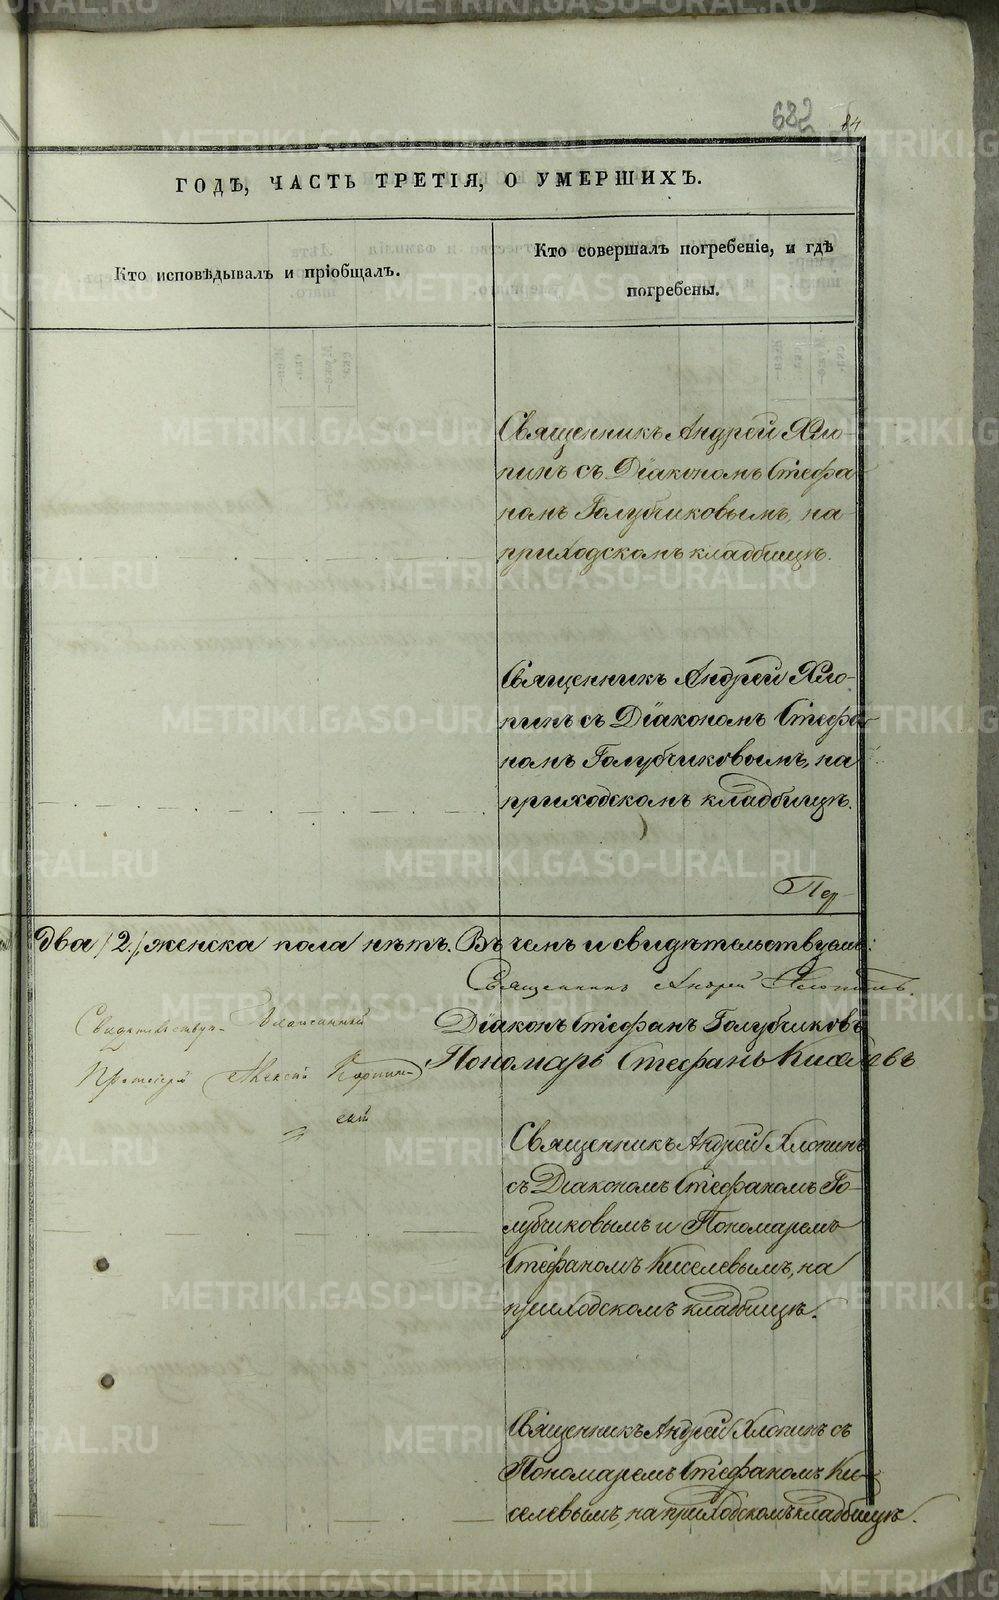 682 84
ГОДѢ, ЧАСТЬ ТРЕТІЯ, О УМЕРШИХЪ.
Кто исповѣдывалъ и пріобщалъ.
Кто совершалъ погребеніе, и гдѣ
погребены.
Священникъ Андрей Хло-
пинъ съ Діакономъ Стефа-
номъ Голубчиковымъ, на
приходскомъ кладбищѣ.
Священникъ Андрей Хло-
пинъ съ Діакономъ Стефа-
номъ Голубчиковымъ, на
приходскомъ кладбищѣ.
Пер-
два /2./, женска пола нѣтъ. Въ чемъ и свидѣтельствуемъ:
Священникъ Андрей Хлопинъ.
Діаконъ Стефанъ Голубчиковъ
Пономарь Стефанъ Киселевъ
Свидетельству-
Протоіерей Алексій
скій
Священникъ Андрей Хлопинъ
съ Діакономъ Стефаномъ Го-
лубчиковымъ и Пономаремъ
Стефаномъ Киселевымъ, на
приходскомъ кладбищѣ.
Священникъ Андрей Хлопинъ съ
Пономаремъ Стефаномъ Ки-
селевымъ, на приходскомъ кладбищѣ.
METRIKI.GASO-URAL.RU